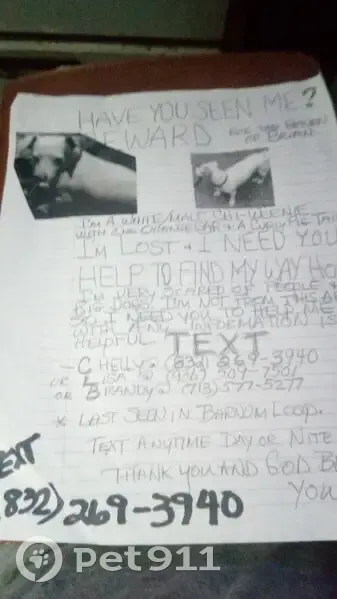 HAVE YOU SEEN ME?
REWARD FOR THE RETURN
OF BRIAN.
I'M A WHITE/MALE CHI-WEENIE
WITH ONE ORANGE EAR & A CURLY
I'M LOST & I NEED YOU
HELP TO FIND MY WAY HO
I'M VERY SCARED OF PEOPLE &
BIG DOGS! I'M NOT FROM THIS AR
SO I NEED YOU TO HELP ME
WITH ANY INFORMATION IS
HELPFUL. TEXT
- CHELLY @ (832) 269-3940
OR LISA @
OR BRANDY @ (713) 577-5277
* LAST SEEN IN BARNUM LOOP.
TEXT ANYTIME DAY OR NITE
THANK YOU AND GOD BL
YOU
EXT
832) 269-3940
pet911